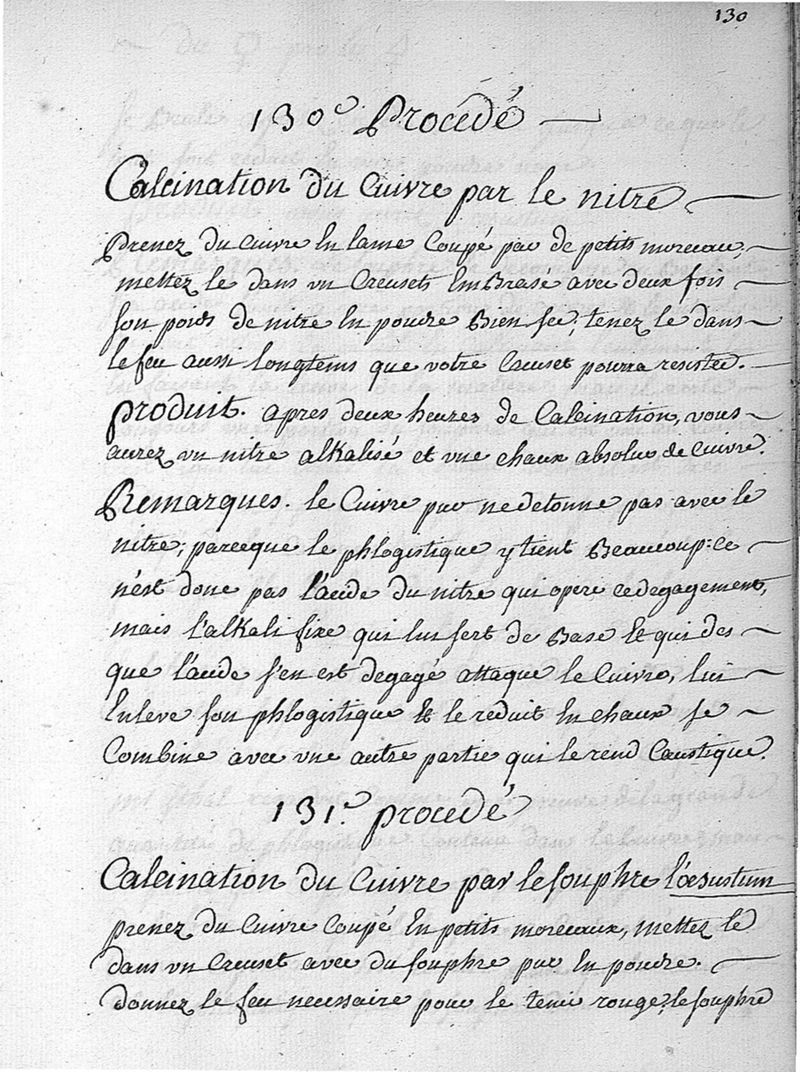 130
130e Procédé
Calcination du Cuivre par le nitre
Prenez du Cuivre En lame Coupé par de petits morceau,
mettez le dans un Creusets Embrasé avec deux fois
son poids de nitre En poudre Bien sec, tenez le dans
le feu aussi longtems que votre Creuset pourra resister.
produit. apres deux heures de Calcination, vous
aurez un nitre alkalisé et une chaux absolue de Cuivre.
Remarques. le Cuivre pur ne detonne pas avec le
nitre, parceque le phlogistique y tient Beaucoup: ce
n'est donc pas l'acide du nitre qui opere ce degagement,
mais l'alkali fixe qui lui sert de Base & qui des
que l'acide s'en est degagé attaque le Cuivre, lui
Enleve son phlogistique & le reduit En chaux se
Combine avec une autre partie qui le rend Caustique.
131e procédé
Calcination du Cuivre par le souphre l'œsustum
prenez du Cuivre Coupé En petits morceaux, mettez le
dans un Creuset avec du souphre pur En poudre.
donnez le feu necessaire pour le tenir rouge, le souphre